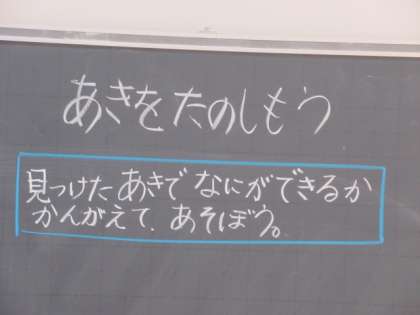 あきをたのしもう
見つけたあきでなにができるか
かんがえて、あそぼう。